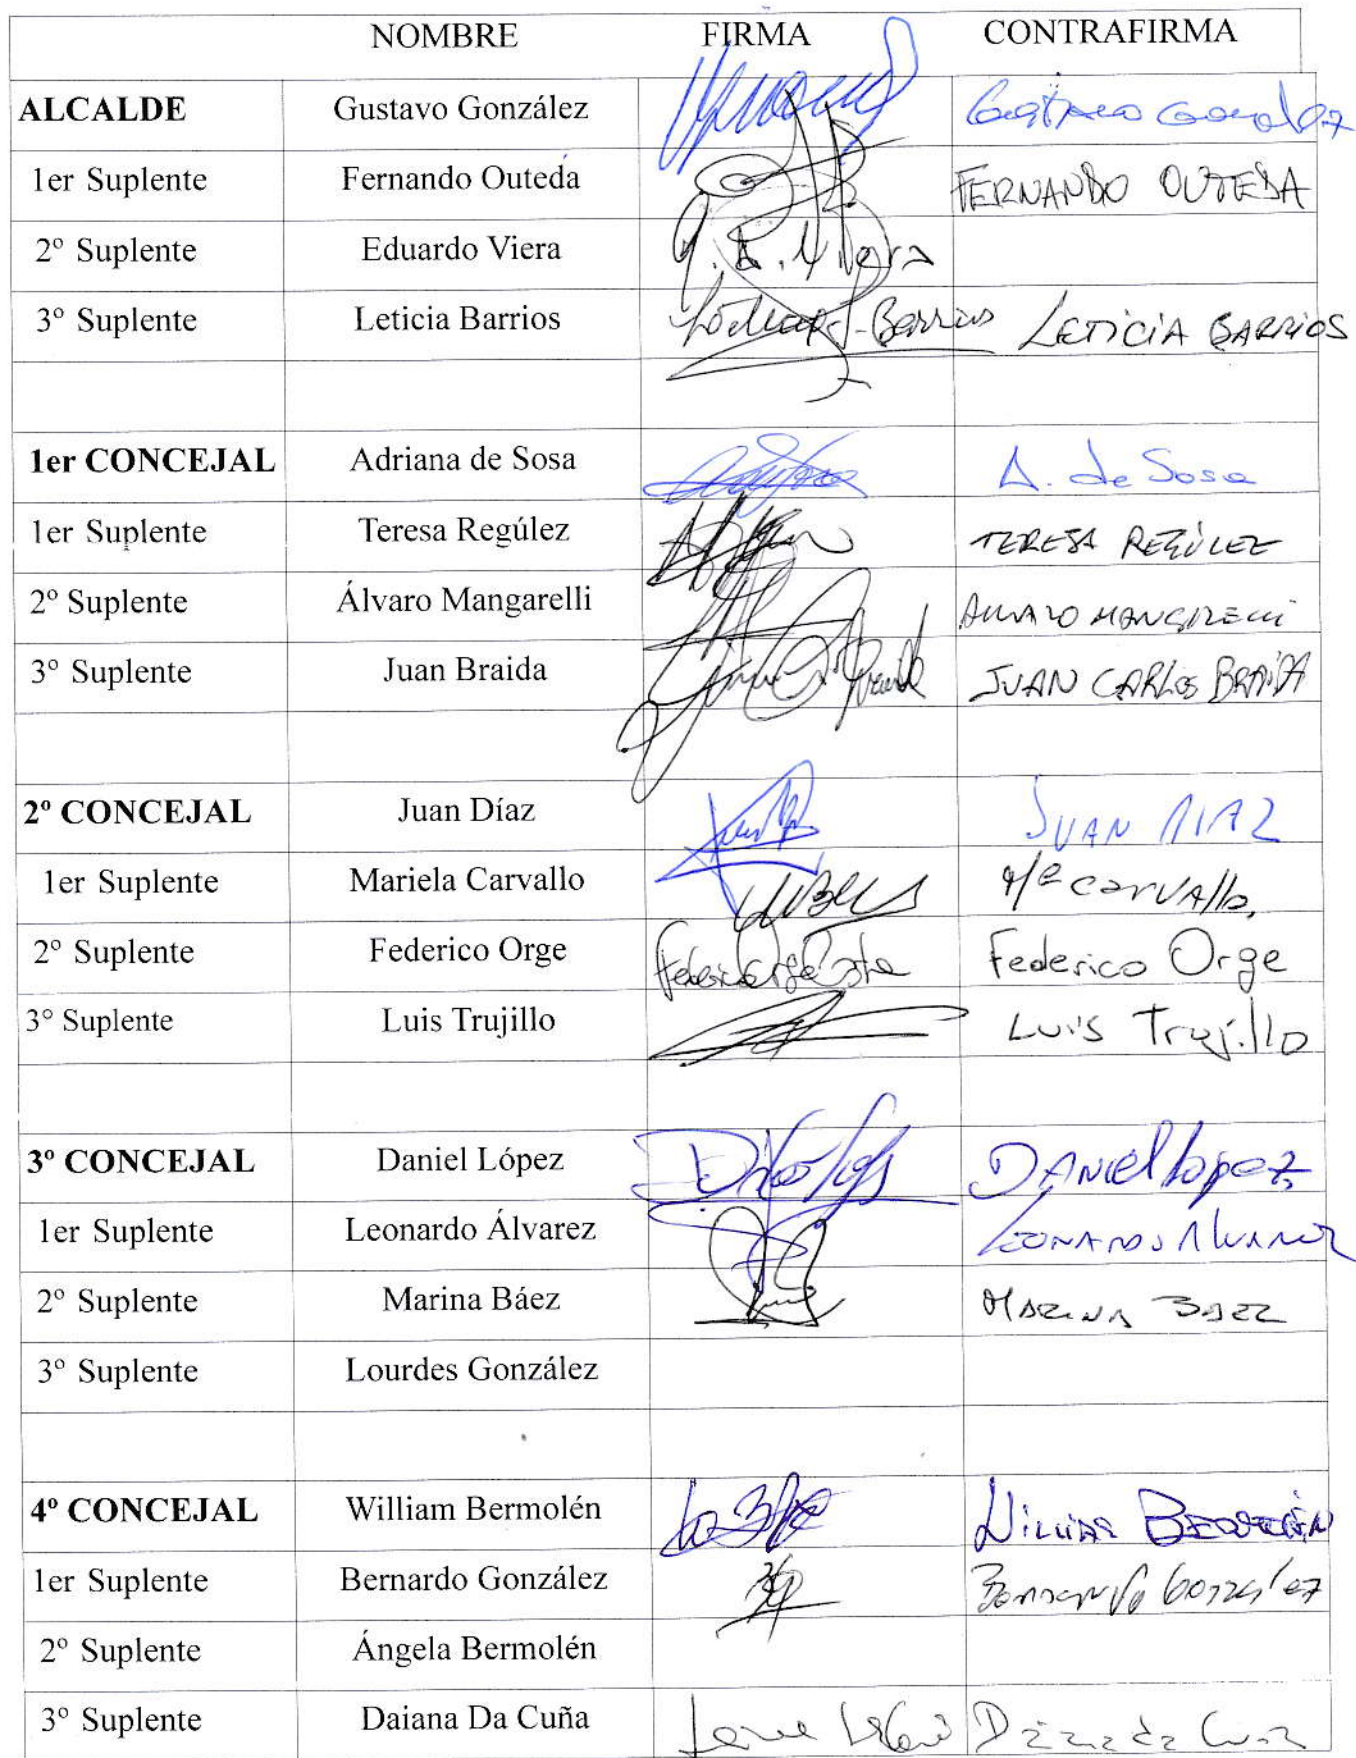 NOMBRE FIRMA CONTRAFIRMA
ALCALDE Gustavo González Gustavo Gonzalez
1er Suplente Fernando Outeda FERNANDO OUTEDA
2º Suplente Eduardo Viera
3º Suplente Leticia Barrios Barrios LETICIA BARRIOS
1er CONCEJAL Adriana de Sosa A. de Sosa
1er Suplente Teresa Regúlez TERESA REGÚLEZ
2º Suplente Álvaro Mangarelli
3º Suplente Juan Braida JUAN CARLOS BRAIDA
2º CONCEJAL Juan Díaz JUAN DIAZ
1er Suplente Mariela Carvallo Mª Carvallo,
2º Suplente Federico Orge Federico Orge
3º Suplente Luis Trujillo Luis Trujillo
3º CONCEJAL Daniel López DANIEL Lopez
1er Suplente Leonardo Álvarez LEONARDO ALVAREZ
2º Suplente Marina Báez MARINA BAEZ
3º Suplente Lourdes González
4º CONCEJAL William Bermolén
1er Suplente Bernardo González Bernardo González
2º Suplente Ángela Bermolén
3º Suplente Daiana Da Cuña